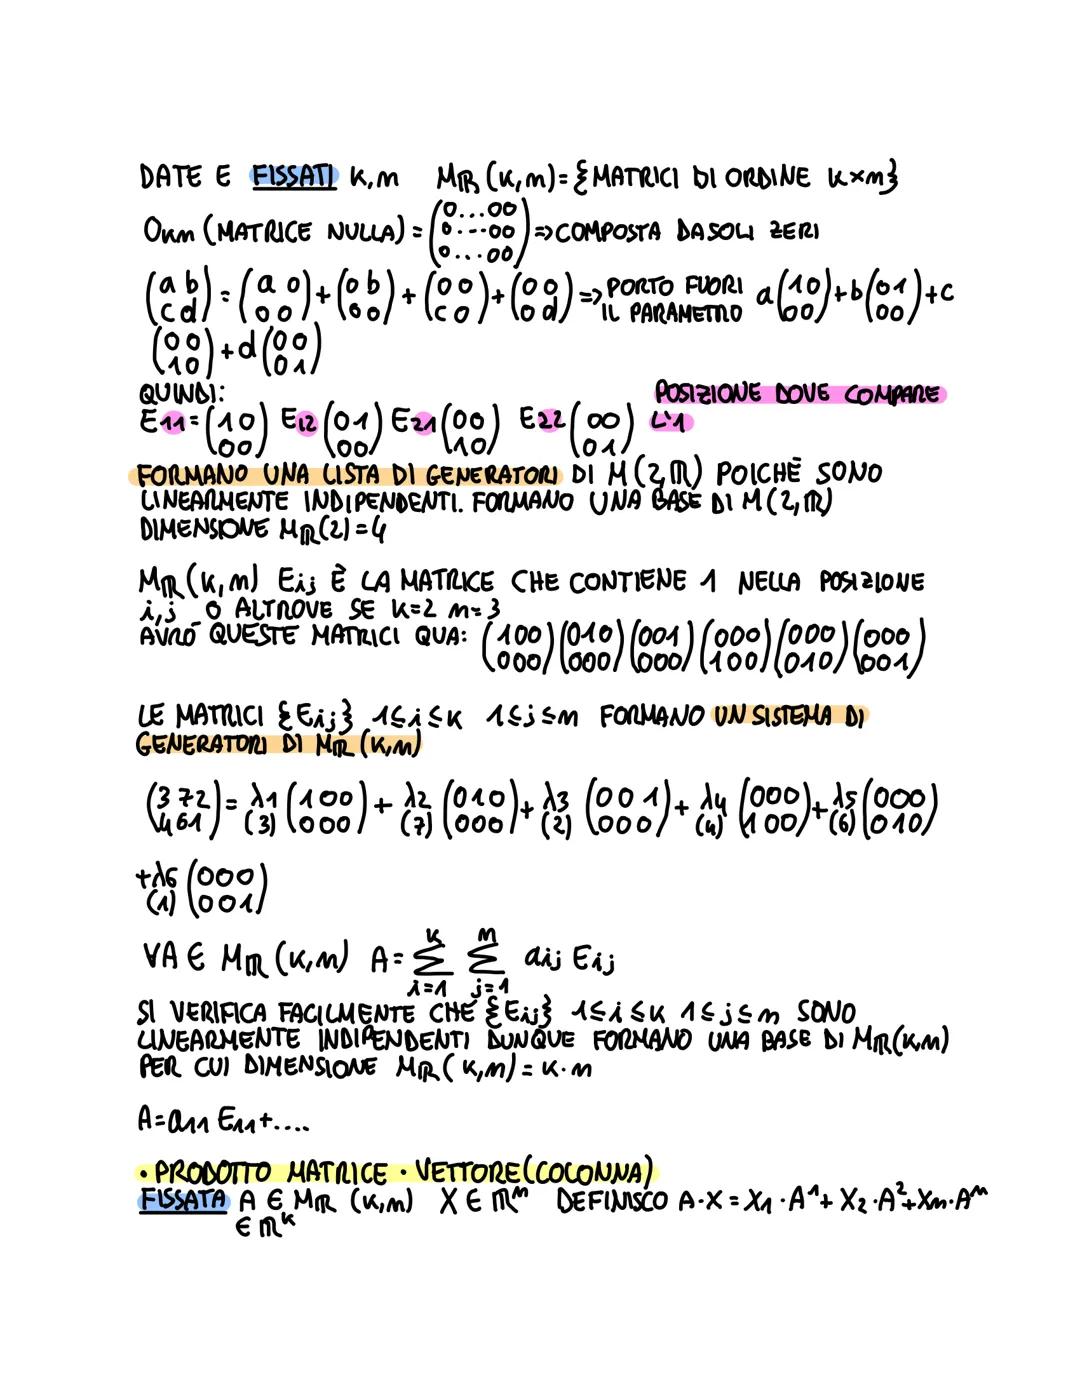 DATE E FISSATI K,m MR (K,m)={MATRICI DI ORDINE K×m}
OKm (MATRICE NULLA) = (0...00 / 0...00 / 0...00) ⇒ COMPOSTA DA SOLI ZERI
(a b / c d) = (a 0 / 0 0) + (0 b / 0 0) + (0 0 / c 0) + (0 0 / 0 d) ⇒ PORTO FUORI IL PARAMETRO a(1 0 / 0 0)+b(0 1 / 0 0)+c
(0 0 / 1 0) + d(0 0 / 0 1)
QUINDI: POSIZIONE DOVE COMPARE
E11=(1 0 / 0 0) E12(0 1 / 0 0) E21(0 0 / 1 0) E22(0 0 / 0 1) L'1
FORMANO UNA LISTA DI GENERATORI DI M(2,R) POICHÈ SONO
LINEARMENTE INDIPENDENTI. FORMANO UNA BASE DI M(2,R)
DIMENSIONE MR(2)=4
MR(K,m) Eij È LA MATRICE CHE CONTIENE 1 NELLA POSIZIONE
i,j 0 ALTROVE SE K=2 m=3
AVRÒ QUESTE MATRICI QUA: (100 / 000)(010 / 000)(001 / 000)(000 / 100)(000 / 010)(000 / 001)
LE MATRICI {Eij} 1≤i≤K 1≤j≤m FORMANO UN SISTEMA DI
GENERATORI DI MR(K,m)
(3 7 2 / 4 6 1) = λ1 (3) (100 / 000) + λ2 (7) (010 / 000) + λ3 (2) (001 / 000) + λ4 (4) (000 / 100) + λ5 (6) (000 / 010)
+λ6 (1) (000 / 001)
∀A ∈ MR (K,m) A= K Σ i=1 m Σ j=1 aij Eij
SI VERIFICA FACILMENTE CHE {Eij} 1≤i≤K 1≤j≤m SONO
LINEARMENTE INDIPENDENTI DUNQUE FORMANO UNA BASE DI MR(K,m)
PER CUI DIMENSIONE MR(K,m)=K·m
A=a11 E11+....
• PRODOTTO MATRICE · VETTORE(COLONNA)
FISSATA A ∈ MR (K,m) X ∈ Rᵐ DEFINISCO A·X = X1·A¹+ X2·A²+Xm·Aᵐ
∈ Rᴷ